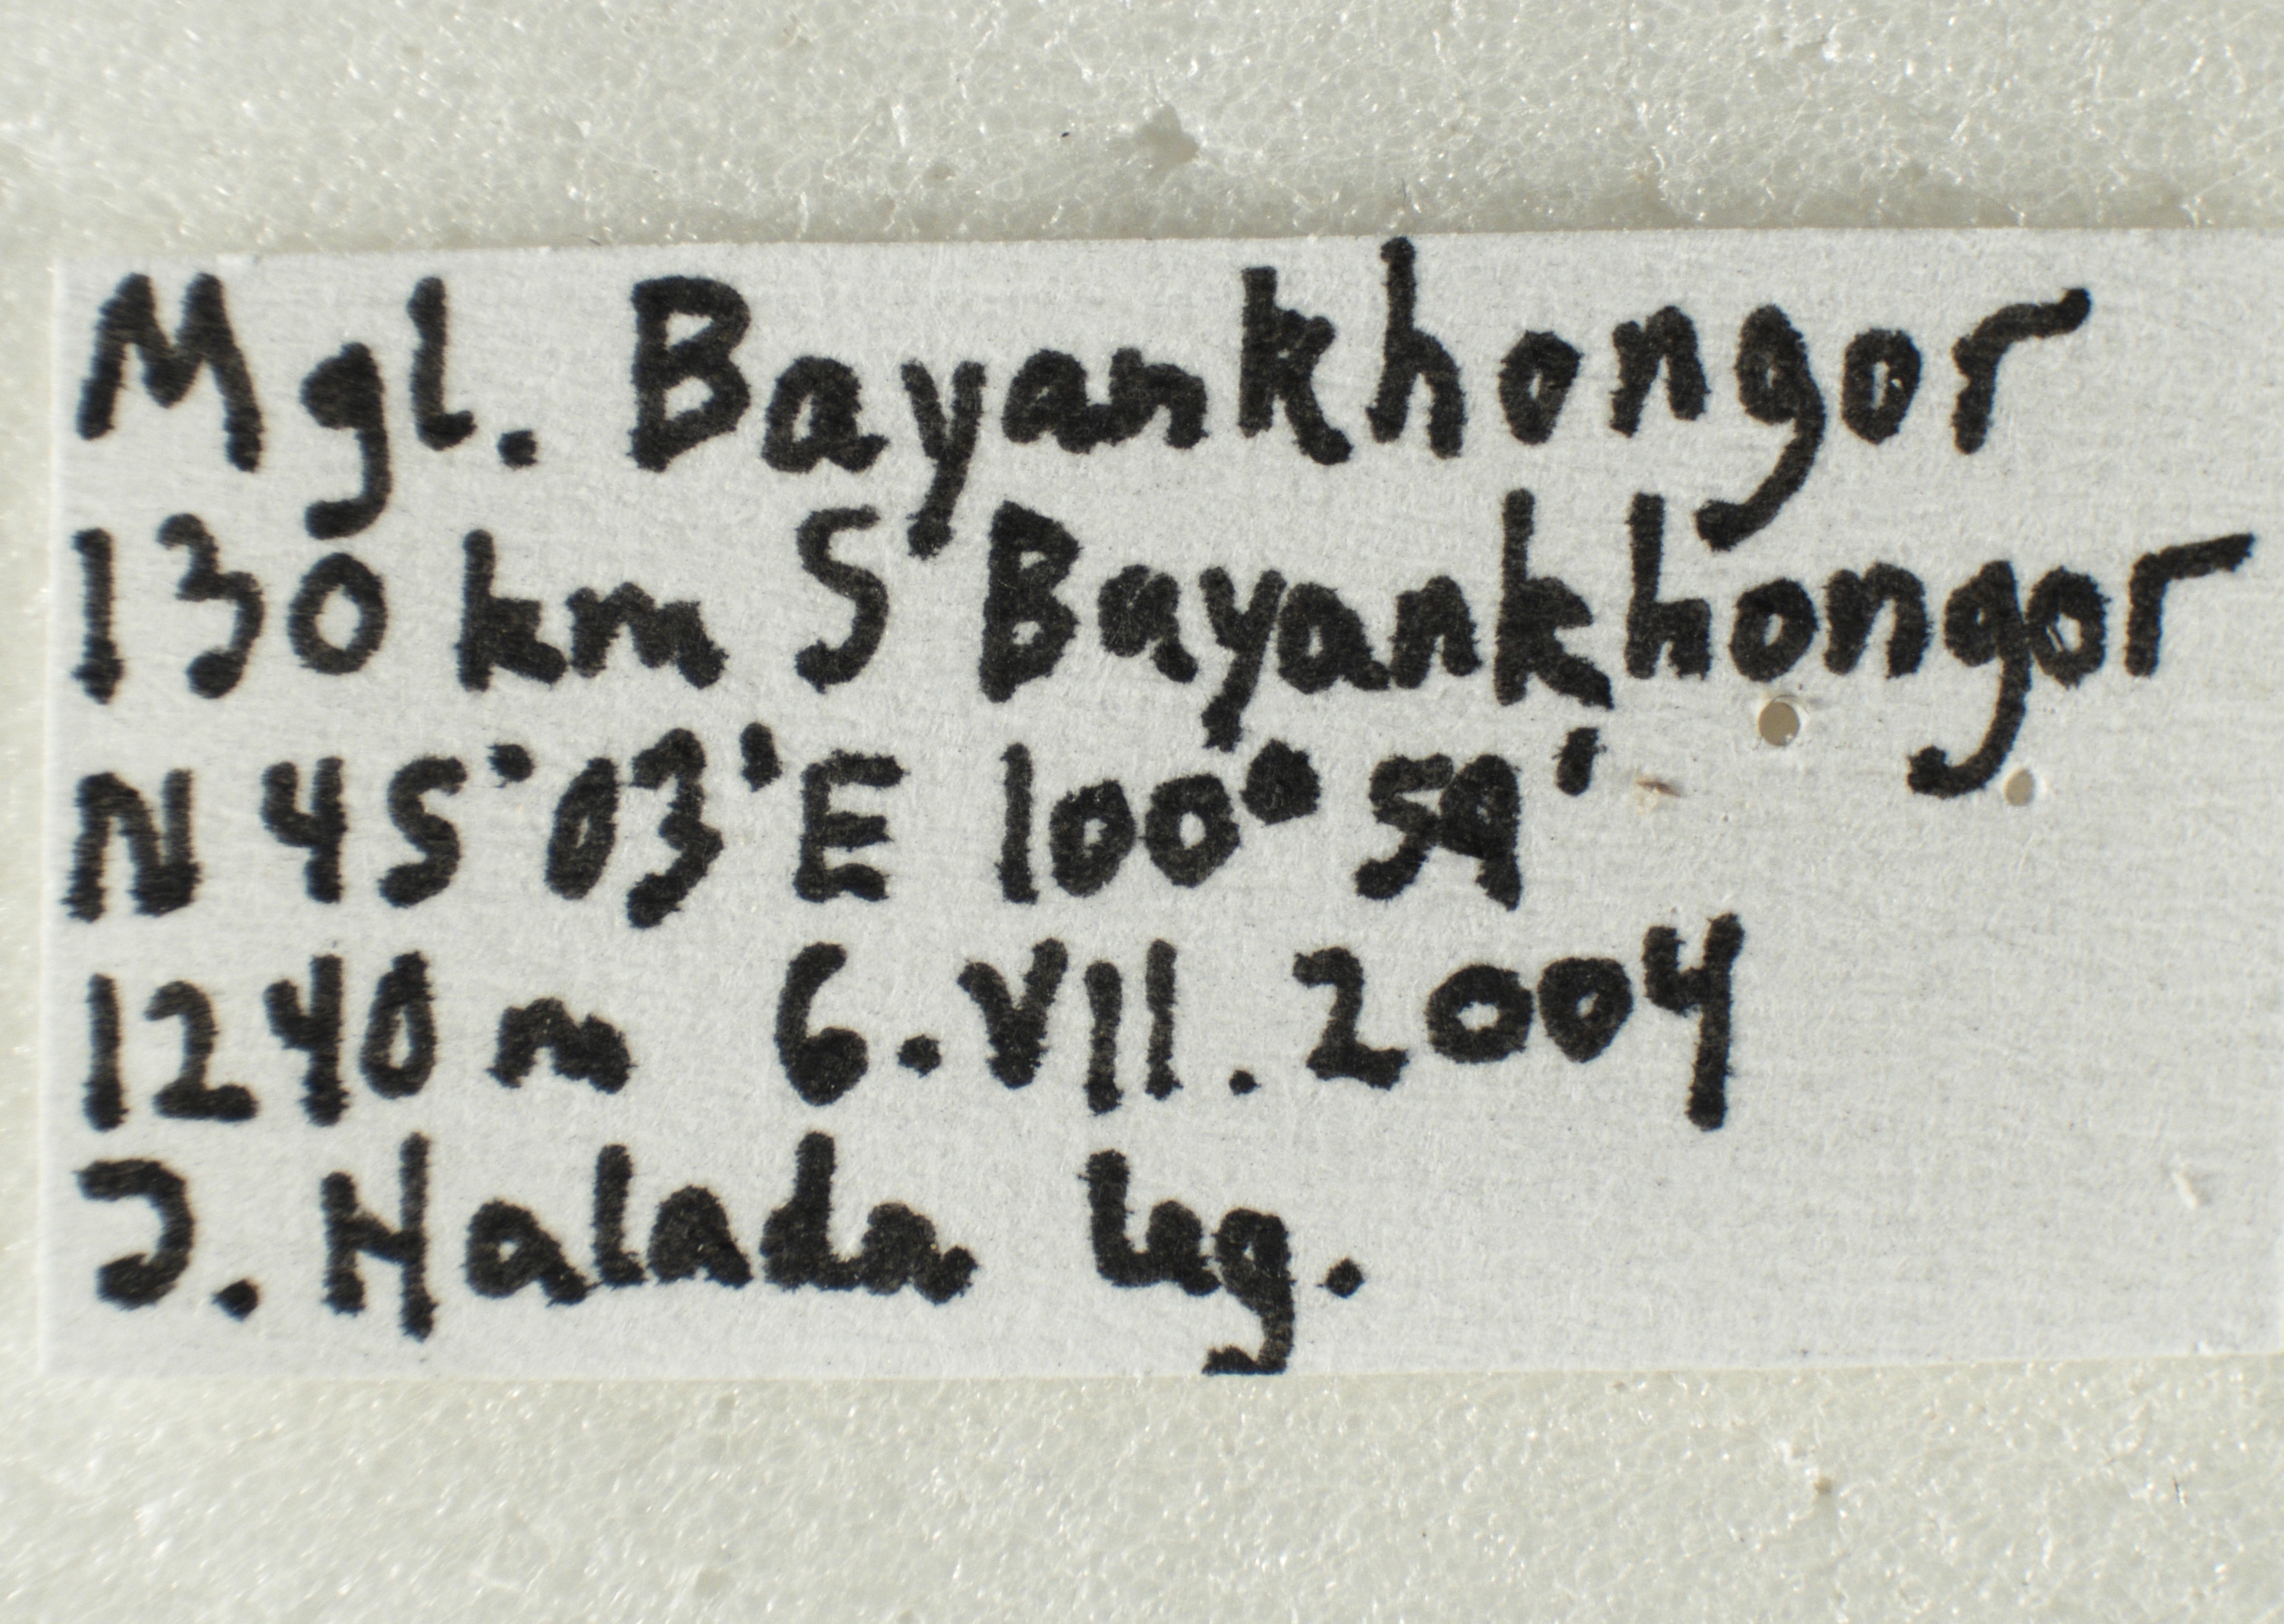 Mgl. Bayankhongor
130 km S Bayankhongor
N 45°03' E 100° 59'
1240 m 6.VII.2004
J. Halada leg.